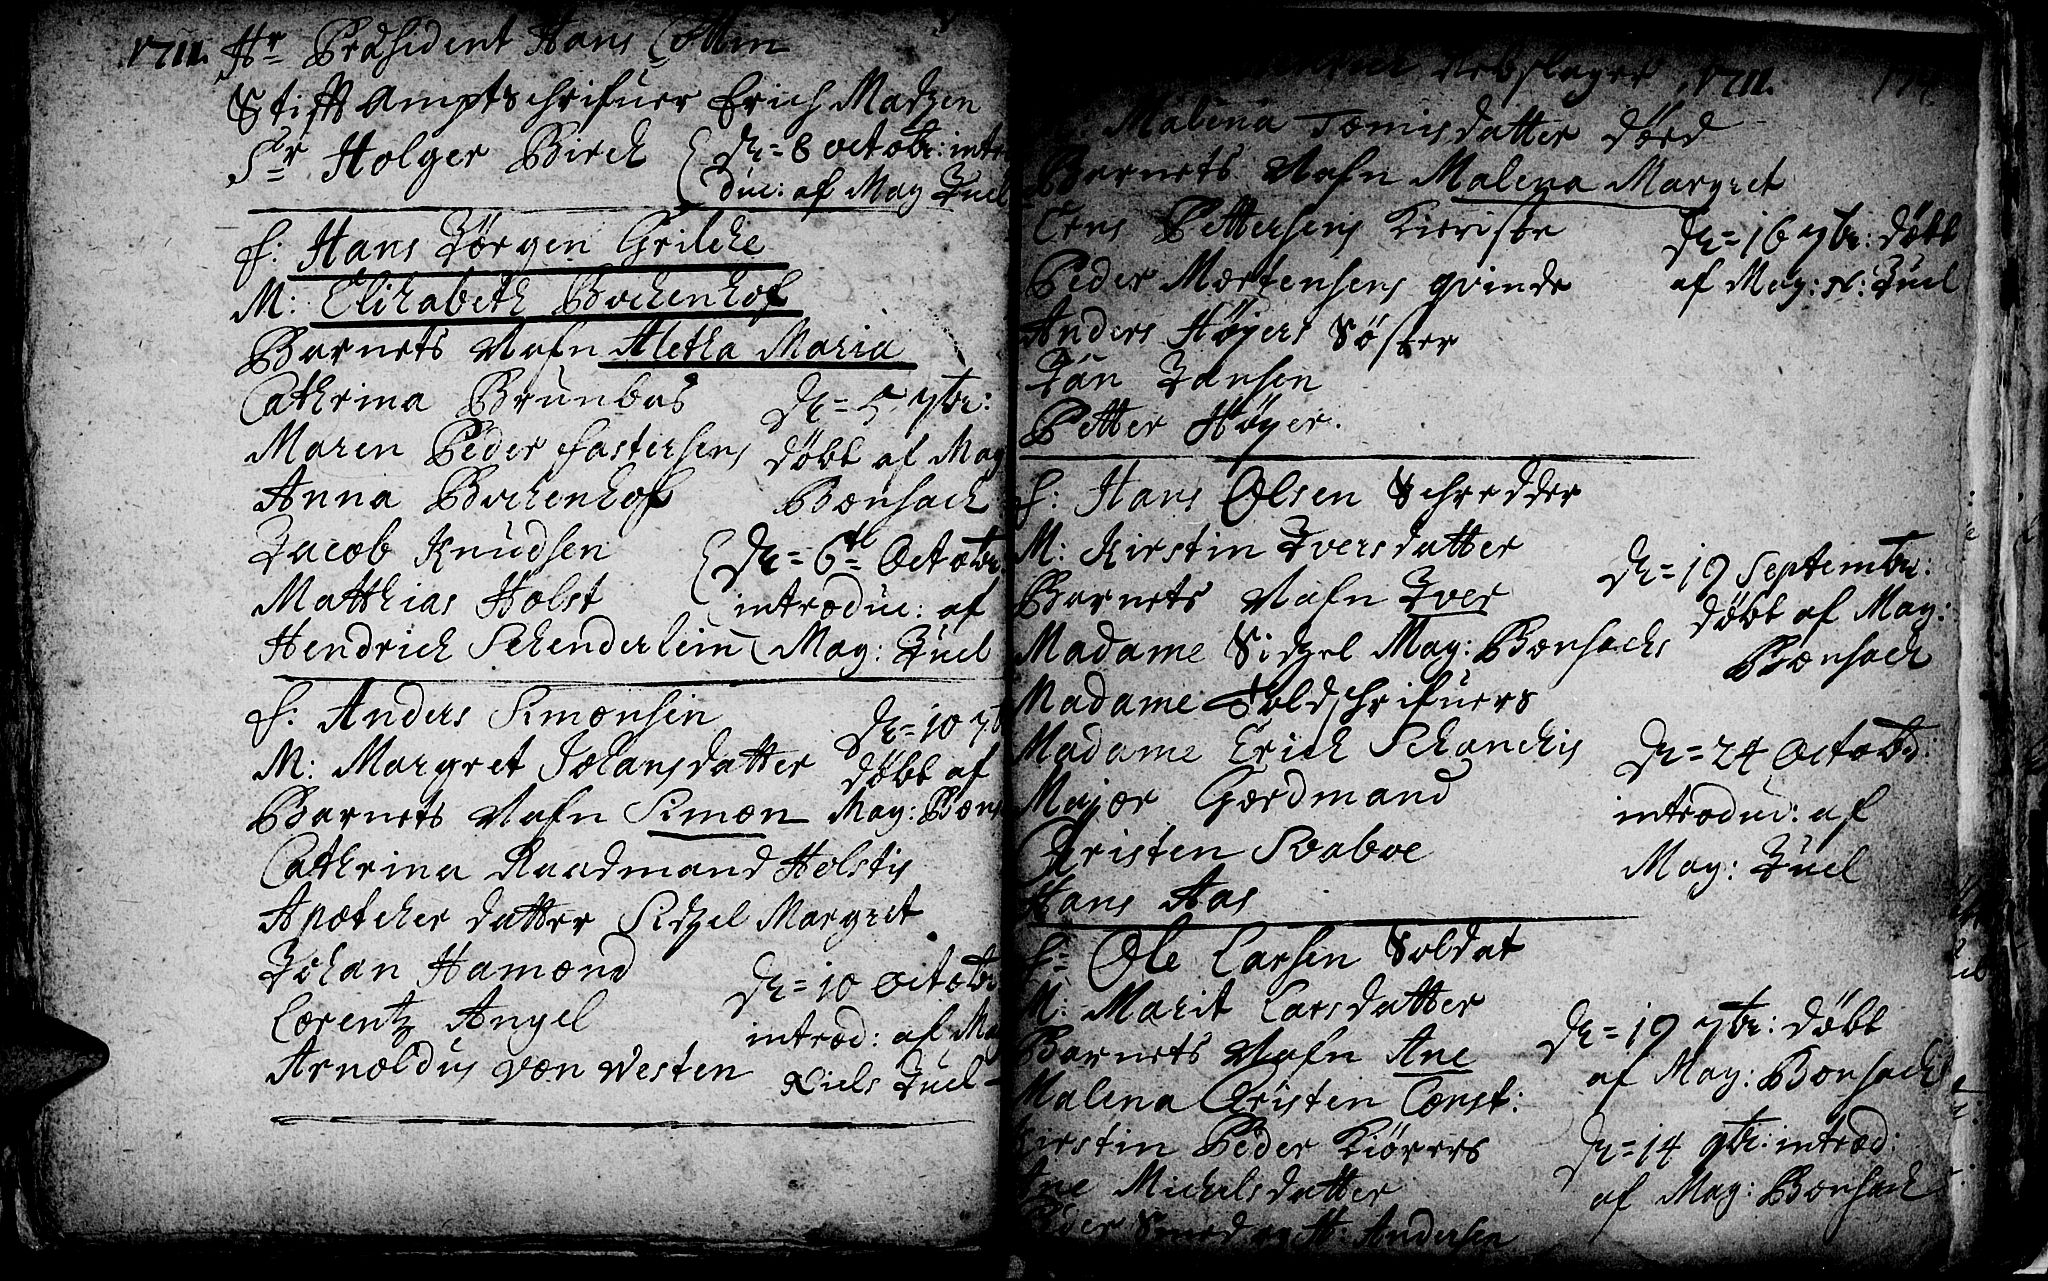 .1711. Hr Præsident Hans Collin
Stifft Amptschrifuer Erich Madzen
Sr Holger Birch
d. = 8 octobr: intro
duc: af Mag Juel
f: Hans Jørgen Grilche
M: Elizabeth Bochenhof
Barnets Nafn Aletha Maria
Cathrina Brunbas
Maren Peder fastersens
Anna Bochenhof
Jacob Knudsen
Matthias Holst
Hendrich Schenderlein
d. = 5 7br:
døbt af Mag
Bonsach
d. = 6te Octobr
introduc: af
Mag: Juel
f: Anders Simonsen
M: Margret Johansdatter
Barnets Nafn Simon
Cathrina Raadmand Holstis
Apotcher datter Sidzel Margret
Johan Hamond
Lorentz Angel
Arnoldus von Westen
d. = 10 7b
døbt af
Mag: Bons
d. = 10 Octobr
introd: af Mag
Niels Juel
Rebslager .1711.
Malena Tomisdatter død
Barnets Nafn Malena Margret
Peder Mortensens qvinde
Anders Høyers Søster
Jan Jansen
Petter Høyer.
d. = 16 7br: døbt
af Mag: N: Juel
f: Hans Olsen Schredder
M: Kirstin Iversdatter
Barnets Nafn Iver
Madame Sidzel Mag: Bonsachs
Madame Toldschrifuers
Madame Erich Schanchis
Major Gordmand
Christen Svaboe
Hans Aas
d. = 19 Septembr:
døbt af Mag:
Bonsach
d. = 24 Octobr:
introduc: af
Mag: Juel
f: Ole Larsen Soldat
M: Marit Larsdatter
Barnets Nafn Ane
Malena Christen Const:
Kirstin Peder Kiørers
Ane Michelsdatter
Peder Smed og H: Andersen
d. = 19 7br: døbt
af Mag: Bonsach
d. = 14 9br: introd:
af Mag: Bonsach